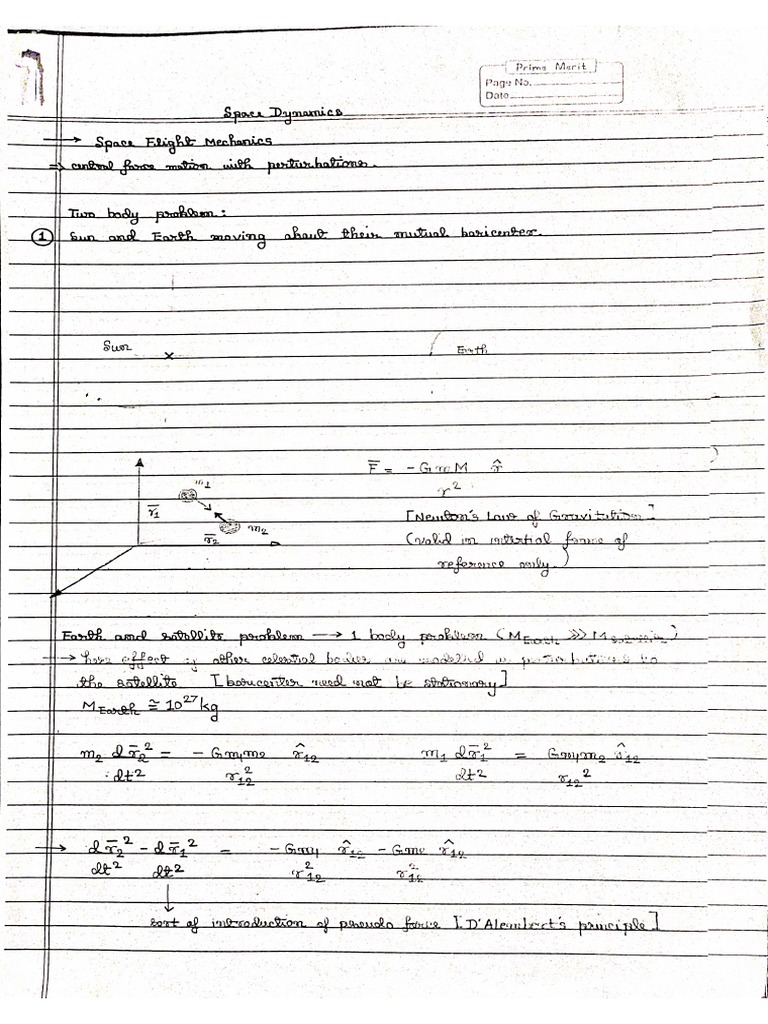 Prime Merit
Page No.
Date
Space Dynamics
→ Space Flight Mechanics
⇒ central force motion with perturbations.
Two body problem:
① Sun and Earth moving about their mutual baricenter.
Sun × Earth
F̅ = -GmM/r² r̂
m₁
r̅₁
m₂
r̅₂
[Newton's Law of Gravitation]
(valid in inertial frame of
reference only.)
Earth and satellite problem → 1 body problem (M_Earth >>> M_satellite)
→ here effect of other celestial bodies are modelled as perturbations to
the satellite [baricenter need not be stationary]
M_Earth ≅ 10²⁷ kg
m₂ d r̅₂²/dt² = -Gm₁m₂/r₁₂² r̂₁₂ m₁ d r̅₁²/dt² = Gm₁m₂/r₁₂² r̂₁₂
→ d r̅₂²/dt² - d r̅₁²/dt² = -Gm₁/r₁₂² r̂₁₂ - Gm₂/r₁₂² r̂₁₂
↓
sort of introduction of pseudo force [D'Alembert's principle]